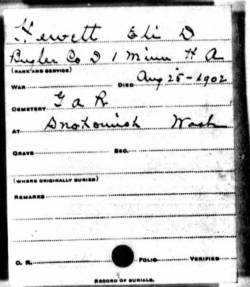 Hewett Eli D
Bugler Co D 1 Minn H A
(RANK AND SERVICE)
WAR DIED Aug 25-1902
CEMETERY G a R
AT Snohomish Wash
GRAVE SEC.
(WHERE ORIGINALLY BURIED)
REMARKS
O. R. FOLIO VERIFIED
RECORD OF BURIALS.